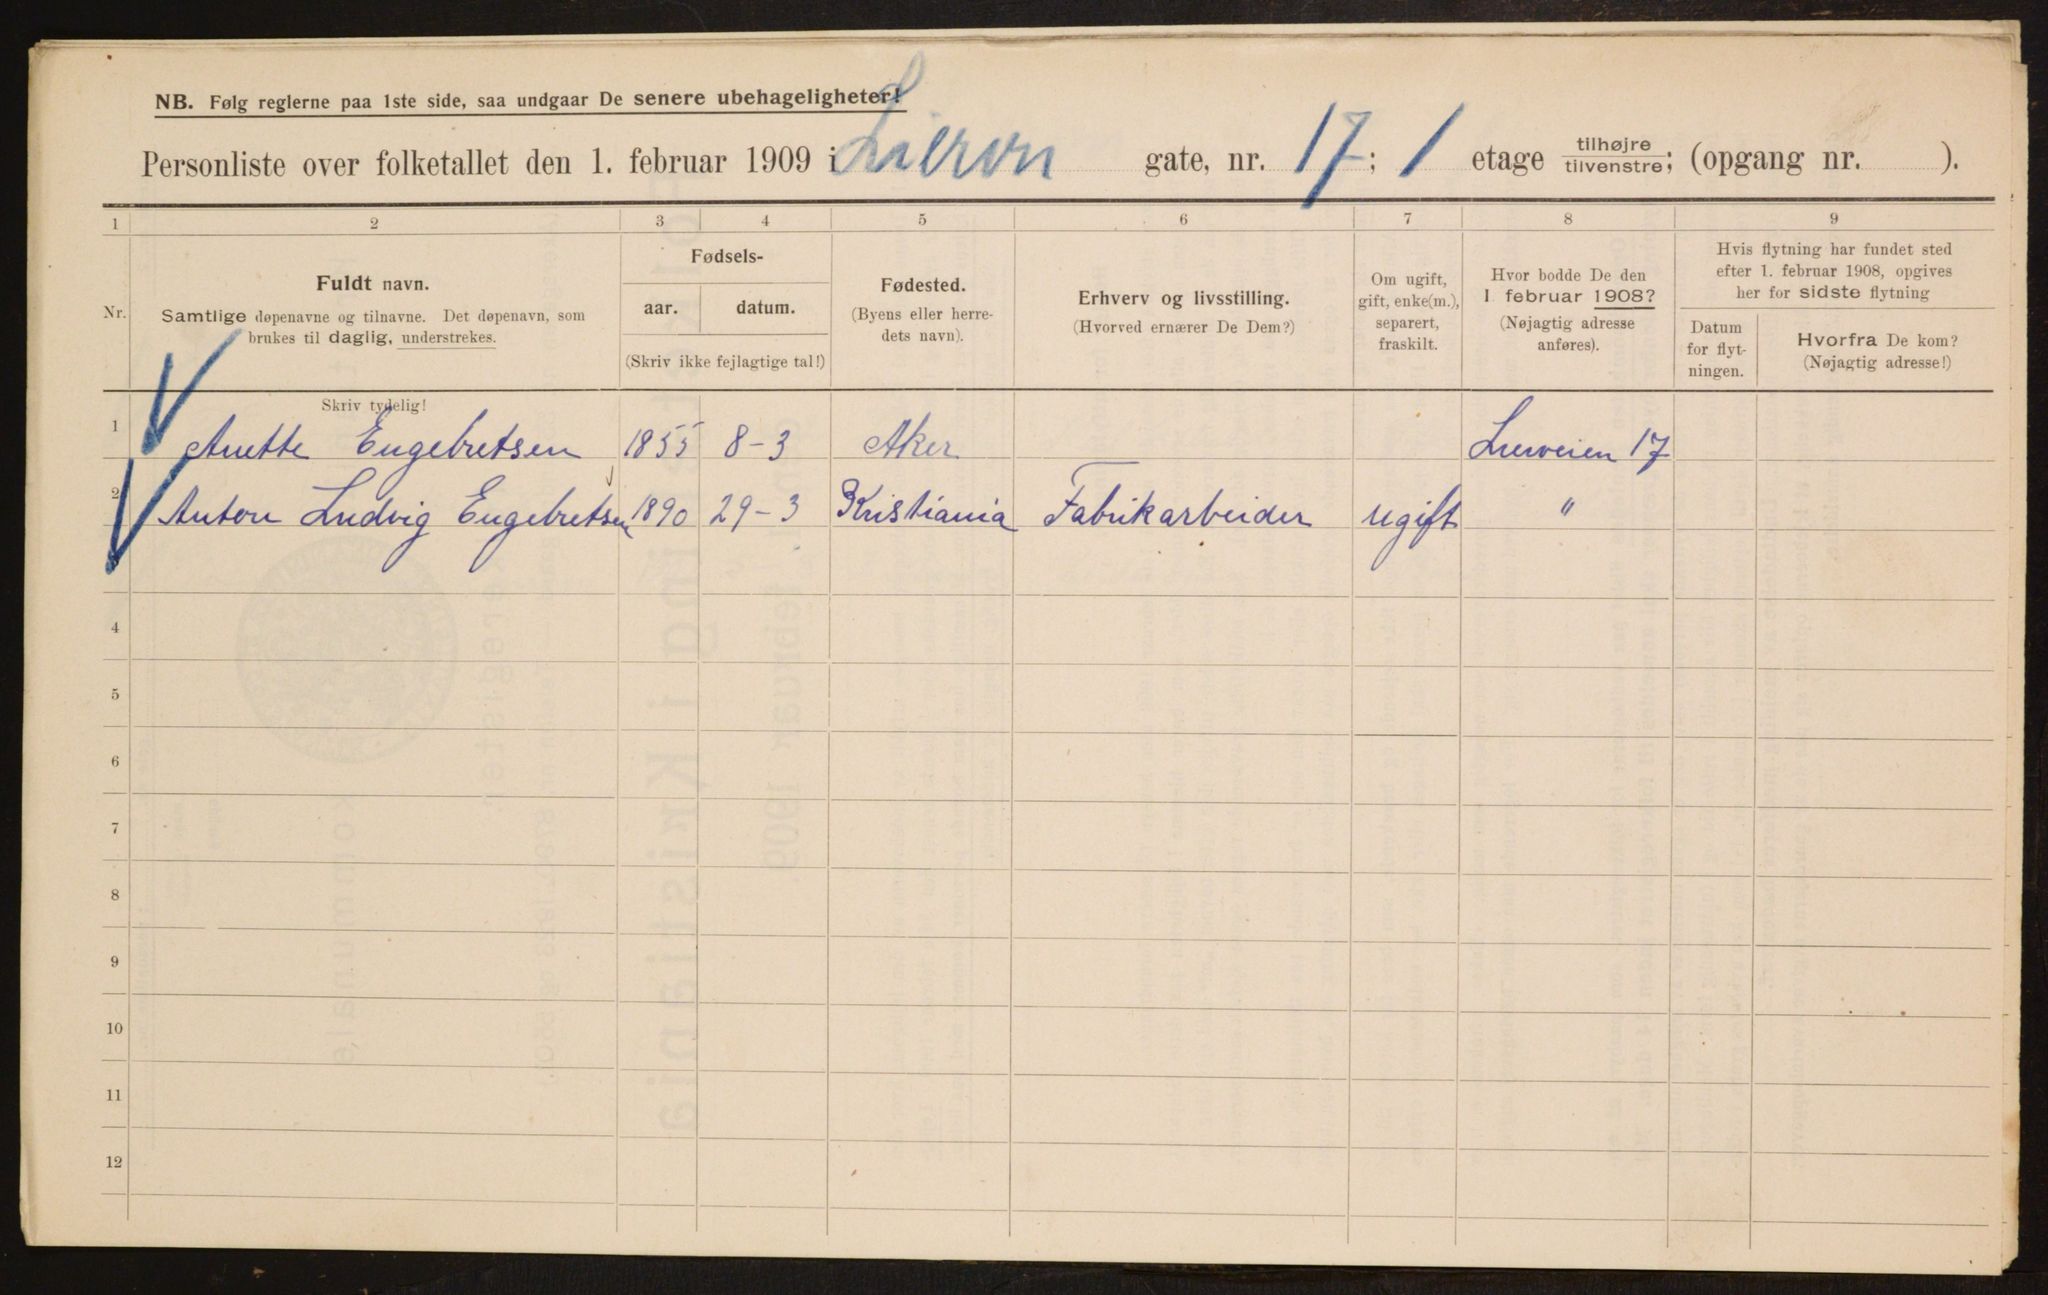 NB. Følg reglerne paa 1ste side, saa undgaar De senere ubehageligheter!
Personliste over folketallet den 1. februar 1909 i gate, nr. 17; 1 etage tilhøjre/tilvenstre; (opgang nr. ).
1 2 3 4 5 6 7 8 9
Nr.
Fuldt navn.
Samtlige døpenavne og tilnavne. Det døpenavn, som
brukes til daglig, understrekes.
Fødsels-
aar. datum.
(Skriv ikke fejlagtige tal!)
Fødested.
(Byens eller herre-
dets navn).
Erhverv og livsstilling.
(Hvorved ernærer De Dem?)
Om ugift,
gift, enke(m.),
separert,
fraskilt.
Hvor bodde De den
1. februar 1908?
(Nøjagtig adresse
anføres).
Hvis flytning har fundet sted
efter 1. februar 1908, opgives
her for sidste flytning
Datum
for flyt-
ningen.
Hvorfra De kom?
(Nøjagtig adresse!)
Skriv tydelig!
1 Anette Engebretsen 1855 8-3 Aker Lierveien 17
2 Anton Ludvig Engebretsen 1890 29-3 Kristiania Fabrikarbeider ugift "
4
5
6
7
8
9
10
11
12